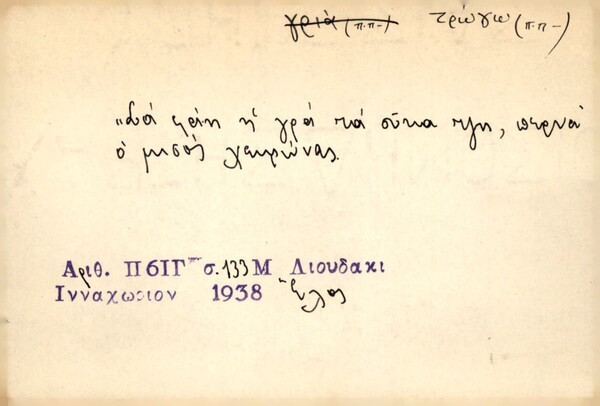 γριά (π.π-) τρώγω (π.π-)
"Σά φάη ἡ γρά τά σῦκα τζη, περνᾷ
ὁ μισός χειμώνας.
Αριθ. Π6ΙΓ σ.133 Μ Λιουδακι
Ινναχωριον 1938 Ἕλος